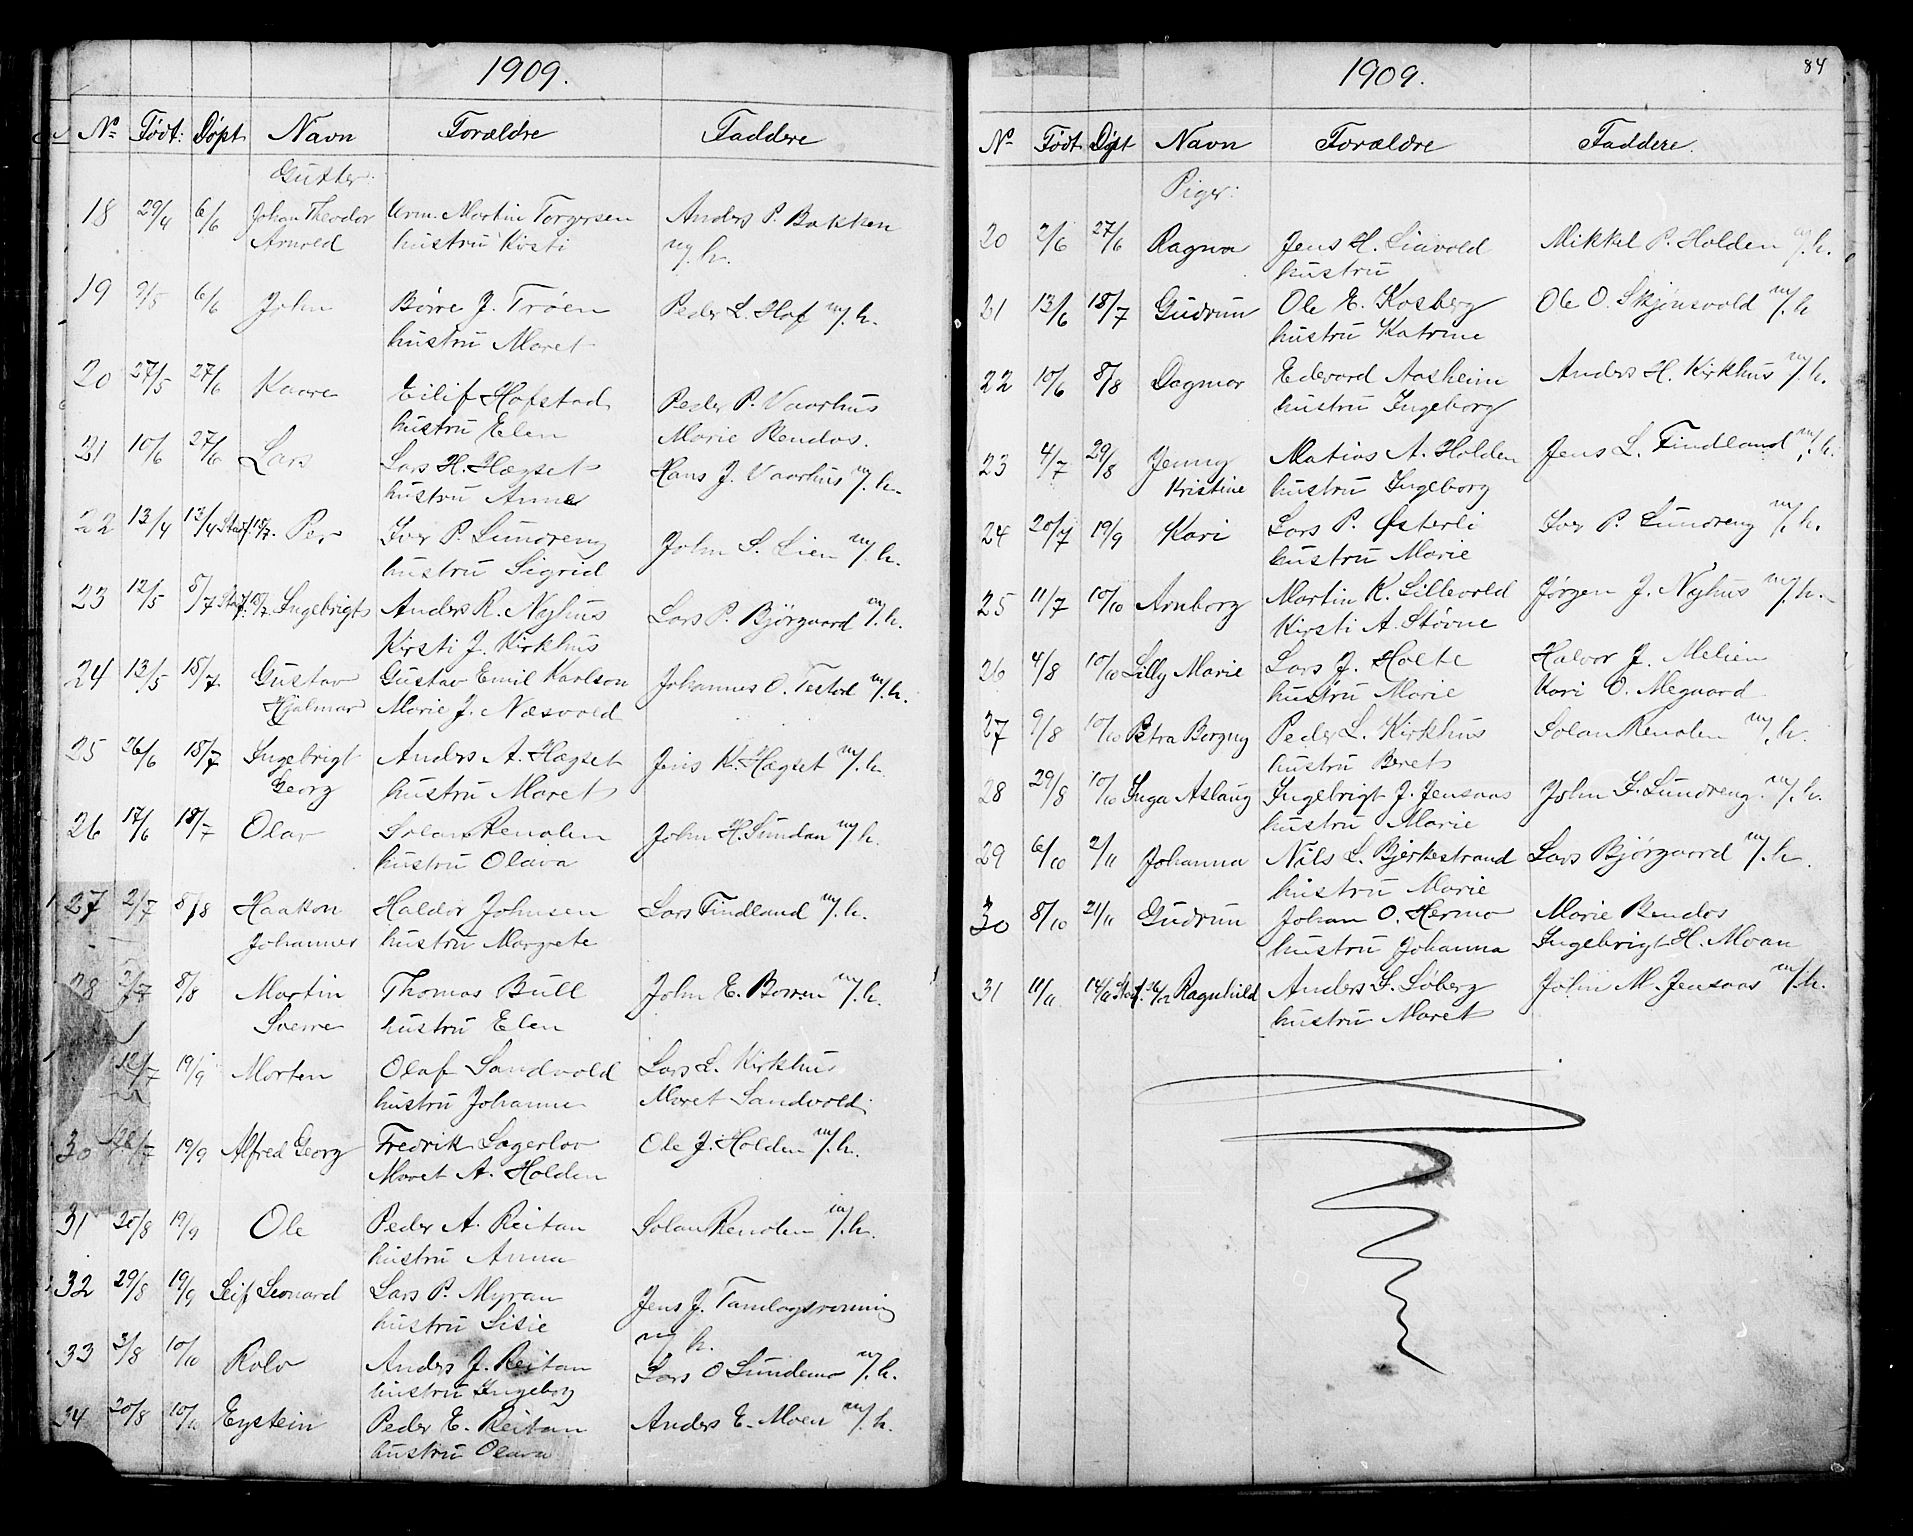 1909.
Nº Født: Døpt Navn Forældre Faddere
Gutter:
18 29/4 6/6 Johan Theodor Urm. Martin Torgersen Anders P. Bakken
Arnold hustru Kirsti m/h.
19 9/5 6/6 John Børre J. Trøen Peder L. Hof m/h.
hustru Maret
20 27/5 27/6 Kaare Eilif Hofstad Peder P. Vaarhus
hustru Elen Marie Rendos.
21 10/6 27/6 Lars Lars H. Hægset Hans J. Vaarhus m/h.
hustru Anne
22 13/4 13/4 Stadf. 18/7. Per Iver P. Lundreng John S. Lien m/h.
hustru Sigrid
23 12/5 5/7 Stadf. 18/7 Ingebrigt Anders R. Nyhus Lars P. Bjørgaard m/h.
Kirsti J. Kirkhus
24 13/5 18/7 Gustav Gustav Emil Karlson Johannes O. m/h.
Hjalmar Marie J. Næsvold
25 26/6 18/7 Ingebrigt Anders A. Hægset Jens K. Hægset m/h.
Georg hustru Maret
26 17/6 18/7 Olav Solan Renolen John H. Sundan m/h.
hustru Olava
27 2/7 8/8 Haakon Haldor Johnsen Lars Findland m/h.
Johannes hustru Margrete
28 2/7 8/8 Martin Thomas Bull John E. Borren m/h.
Sverre hustru Elen
12/7 19/9 Morten Olaf Sandvold Lars L. Kirkhus
hustru Johanne Maret Sandvold
30 26/7 19/9 Alfred Georg Fredrik Lagerlov Ole J. Holden m/h.
Maret A. Holden
31 20/8 19/9 Ole Peder A. Reitan Solan Renolen m/h.
hustru Anna
32 29/8 19/9 Leif Leonard Lars P. Myran Jens J. Tamlagsrønning
hustru Lisie m/h.
33 3/8 10/10 Rolv Anders J. Reitan Lars O Sundemo m/h.
hustru Ingeborg
34 20/8 10/10 Eystein Peder E. Reitan Anders E. Moen m/h.
hustru Olava
84
1909.
Nº Født Døpt Navn Forældre Faddere.
Piger:
20 2/6 27/6 Ragna Jens H. Liavold Mikkel P. Holden m/h.
hustru
21 13/6 18/7 Gudrun Ole E. Kosberg Ole O. Skjnsvold m/h
hustru Katrine
22 10/6 8/8 Dagmar Edevard Aasheim Anders H. Kirkhus m/h.
hustru Ingeborg
23 4/7 29/8 Jenny Matias A. Holden Jens L. Findland m/h.
Kristine hustru Ingeborg
24 20/7 19/9 Kari Lars P. Østerli Iver P. Lundreng m/h.
hustru Marie
25 11/7 10/10 Arnborg Martin K. Lillevold Jørgen J. Nyhus m/h.
Kirsti A. Støvne
26 4/8 10/10 Lilly Marie Lars J. Holte Halvor J. Melien
hustru Marie Kari O. Megaard
27 9/8 10/10 Petra Bergny Peder L. Kirkhus Solan Renolen m/h.
hustru Beret
28 29/8 10/10 Inga Aslaug Ingebrigt J. Jensaas John I. Lundreng. m/h.
hustru Marie
29 6/10 2/11 Johanna Nils L. Bjerkestrand Lars Bjørgaard m/h.
hustru Marie
30 8/10 21/11 Gudrun Johan O. Hermo Marie Rendos
hustru Johanna Ingebrigt H. Moan
31 11/11 14/11 Stadf. 26/12 Ragnhild Anders S. Løberg John M. Jensaas m/h.
hustru Maret